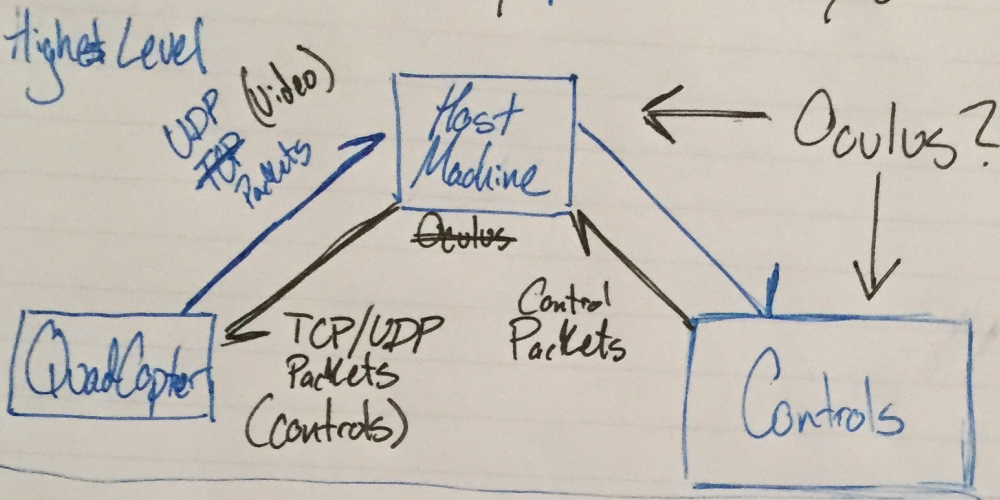 Highest Level
UDP (Video)
TCP
Packets
Host
Machine
Oculus
Oculus?
QuadCopter
TCP/UDP
Packets
(controls)
Control
Packets
Controls